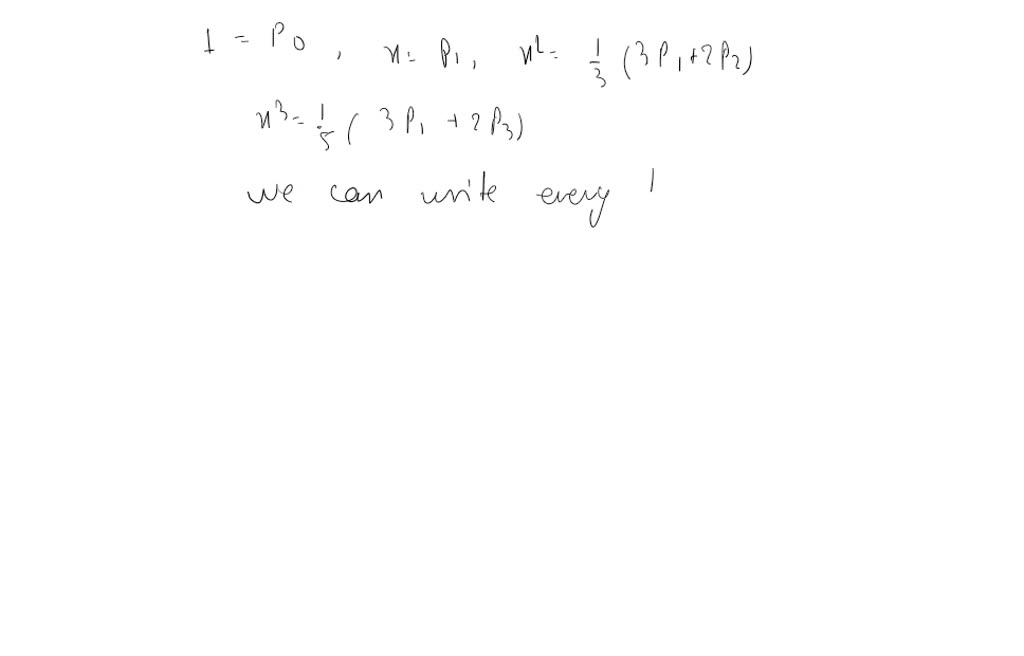 1 = P0, x = P1, x² = 1/3 (3P1 + 2P2)
x³ = 1/5 (3P1 + 2P3)
we can write every